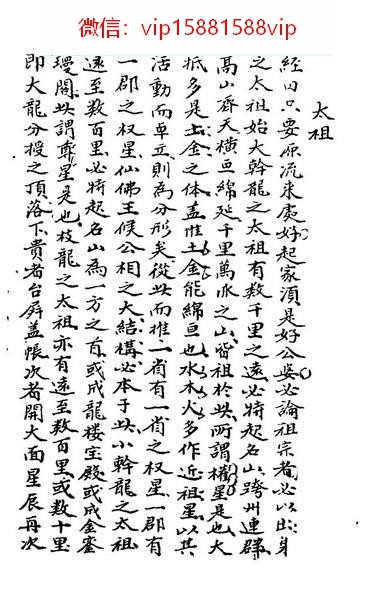 微信：vip15881588vip
太祖
經曰只要原流來處好起家須是好公婆必論祖宗者必以出身
之太祖始大幹龍之太祖有数千里之遠必特起名山跨州連群
髙山齊天横亘綿延千里萬派之山皆祖於此所謂權星是也大
抵多是土金之体盖惟土金能綿亘也水木火多作近祖星以其
活動而卓立則為分形矣從此而推一省有一省之权星一郡有
一郡之权星仙佛王候公相之大結構必本于此小幹龍之太祖
遠至数百里必特起名山為一方之首或成龍楼宝殿或成金鑾
殿閣此謂尊星是也枝龍之太祖亦有遠至数百里或数十里
即大龍分授之頂落下貴者台屏盖帳次者開大面星辰再次